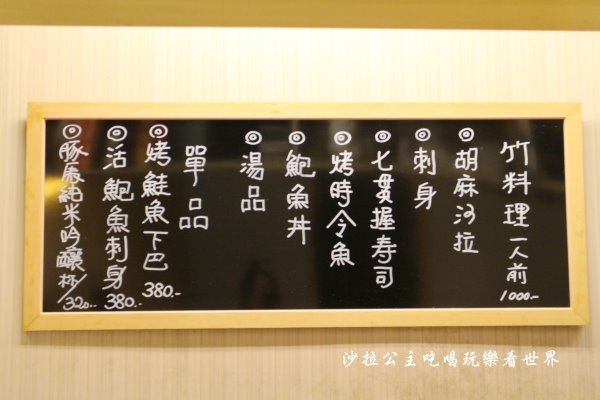 竹料理 一人前 1000.-
◎胡麻沙拉
◎刺身
◎七貫握寿司
◎烤時令魚
◎鮑魚丼
◎湯品
單品
◎烤鮭魚下巴 380.-
◎活鮑魚刺身 380.-
◎豚辰純米吟釀 杯/320.-
沙拉公主吃喝玩樂看世界